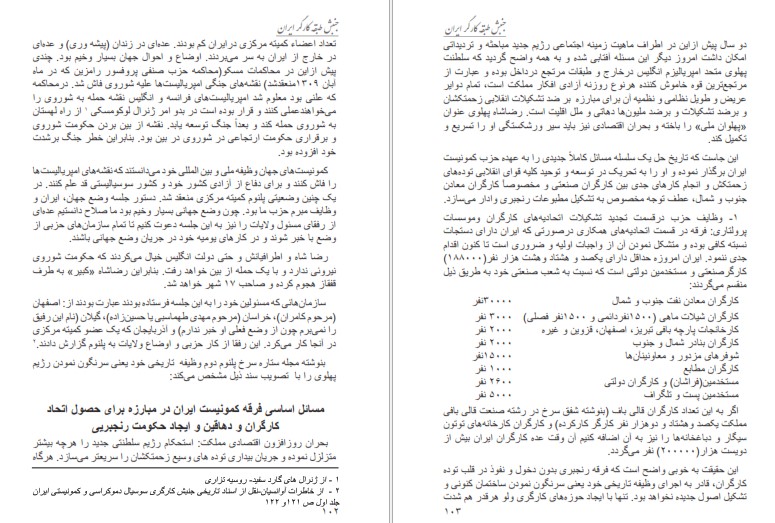 جنبش طبقه کارگر ایران
تعداد اعضاء کمیته مرکزی درایران کم بودند. عده‌ای در زندان (پیشه وری) و عده‌ای
در خارج از ایران به سر می‌بردند. اوضاع و احوال جهان بسیار وخیم بود. چندی
پیش ازاین در محاکمات مسکو(محاکمه حزب صنفی پروفسور رامزین که در ماه
آبان ۱۳۰۹منعقدشد) نقشه‌های جنگی امپریالیست‌ها علیه شوروی فاش شد. درمحاکمه
که علنی بود معلوم شد امپریالیست‌های فرانسه و انگلیس نقشه حمله به شوروی را
می‌خواهندعملی کنند و قرار بوده است در بدو امر ژنرال لوکومسکی ۱ از راه لهستان
به شوروی حمله کند و بعداً جنگ توسعه یابد. نقشه از بین بردن حکومت شوروی
و برقراری حکومت ارتجاعی در شوروی در بین بود. بنابراین خطر جنگ برشدت
خود افزوده بود.
کمونیست‌های جهان وظیفه ملی و بین المللی خود می‌دانستند که‌نقشه‌های امپریالیست‌ها
را فاش کنند و برای دفاع از آزادی کشور خود و کشور سوسیالیستی قد علم کنند. در
یک چنین وضعیتی پلنوم کمیته مرکزی منعقد شد. دستور جلسه وضع جهان، ایران و
وظایف مبرم حزب ما بود. چون وضع جهانی بسیار وخیم بود ما صلاح دانستیم عده‌ای
از رفقای مسئول ولایات را نیز به این جلسه دعوت کنیم تا تمام سازمان‌های حزبی از
وضع با خبر شوند و در کارهای یومیه خود در جریان وضع جهانی باشند.
رضا شاه و اطرافیانش و حتی دولت انگلیس خیال می‌کردند که حکومت شوروی
نیرونی ندارد و با یک حمله از بین خواهد رفت. بنابراین رضاشاه «کبیر» به طرف
قفقاز هجوم کرده و صاحب ۱۷ شهر خواهد شد.
سازمان‌هائی که مسئولین خود را به این جلسه فرستاده بودند عبارت بودند از: اصفهان
(مرحوم کامران)، خراسان (مرحوم مهدی طهماسبی یا حسین‌زاده)، گیلان (نام این رفیق
را نمی‌برم چون از وضع فعلی او خبر ندارم) و آذربایجان که یک عضو کمیته مرکزی
در آنجا کار می‌کرد. این رفقا از کار حزبی و اوضاع ولایات به پلنوم گزارش دادند.۲
بنوشته مجله ستاره سرخ پلنوم دوم وظیفه تاریخی خود یعنی سرنگون نمودن رژیم
پهلوی را با تصویب سند ذیل مشخص می‌کند:
مسائل اساسی فرقه کمونیست ایران در مبارزه برای حصول اتحاد
کارگران و دهاقین و ایجاد حکومت رنجبریی
بحران روزافزون اقتصادی مملکت: استحکام رژیم سلطنتی جدید را هرچه بیشتر
متزلزل نموده و جریان بیداری توده های وسیع زحمتکشان را سریعتر می‌سازد. هرگاه
۱ - از ژنرال های گارد سفید- روسیه تزاری
۲ - از خاطرات آوانسیان-نقل از اسناد تاریخی جنبش کارگری سوسیال دموکراسی و کمونیستی ایران
جلد اول ص ۱۲۱و ۱۲۲
۱۰۲
جنبش طبقه کارگر ایران
دو سال پیش ازاین در اطراف ماهیت زمینه اجتماعی رژیم جدید مباحثه و تردیداتی
امکان داشت امروز دیگر این مسئله آفتابی شده و به همه واضح گردید که سلطنت
پهلوی متحد امپریالیزم انگلیس درخارج و طبقات مرتجع درداخل بوده و عبارت از
مرتجع‌ترین قوه خاموش کننده هرنوع روزنه آزادی افکار مملکت است، تمام دوایر
عریض و طویل نظامی و نظمیه آن برای مبارزه بر ضد تشکیلات انقلابی زحمتکشان
و برضد تشکیلات و برضد ملیون‌ها دهاتی و ملل اقلیت است. رضاشاه پهلوی عنوان
«پهلوان ملی» را باخته و بحران اقتصادی نیز باید سیر ورشکستگی او را تسریع و
تکمیل کند.
این جاست که تاریخ حل یک سلسله مسائل کاملاً جدیدی را به عهده حزب کمونیست
ایران برگذار نموده و او را به تحریک در توسعه و توحید کلیه قوای انقلابی توده‌های
زحمتکش و انجام کارهای جدی بین کارگران صنعتی و مخصوصاً کارگران معادن
جنوب و شمال، عطف توجه مخصوص به تشکیل مطبوعات رنجبری وادار می‌سازد.
۱- وظایف حزب درقسمت تجدید تشکیلات اتحادیه‌های کارگران وموسسات
پرولتاری: فرقه در قسمت اتحادیه‌های همکاری درصورتی که ایران دارای دستجات
نسبته کافی بوده و متشکل نمودن آن از واجبات اولیه و ضروری است تا کنون اقدام
جدی ننمود. ایران امروزه حداقل دارای یکصد و هشتاد وهشت هزار نفر(۱۸۸۰۰۰)
کارگرصنعتی و مستخدمین دولتی است که نسبت به شعب صنعتی خود به طریق ذیل
منقسم می‌گردند:
کارگران معادن نفت جنوب و شمال ۳۰۰۰۰نفر
کارگران شیلات ماهی (۱۵۰۰نفردائمی و ۱۵۰۰نفر فصلی) ۳۰۰۰ نفر
کارخانجات پارچه بافی تبریز، اصفهان، قزوین و غیره ۲۰۰۰ نفر
کارگران بنادر شمال و جنوب ۲۰۰۰ نفر
شوفرهای مزدور و معاونینان‌ها ۱۵۰۰۰نفر
کارگران مطابع ۱۰۰۰ نفر
مستخدمین(فراشان) و کارگران دولتی ۲۶۰۰ نفر
مستخدمین پست و تلگراف ۵۰۰۰ نفر
اگر به این تعداد کارگران قالی باف (بنوشته شفق سرخ در رشته صنعت قالی بافی
مملکت یکصد وهشتاد و دوهزار نفر کارگر کارکرده) و کارگران کارخانه‌های توتون
سیگار و دباغخانه‌ها را نیز به آن اضافه کنیم آن وقت عده کارگران ایران بیش از
دویست هزار(۲۰۰۰۰۰) نفر می‌گردد.
این حقیقت به خوبی واضح است که فرقه رنجبری بدون دخول و نفوذ در قلب توده
کارگران، قادر به اجرای وظیفه تاریخی خود یعنی سرنگون نمودن ساختمان کنونی و
تشکیل اصول جدیده نخواهد بود. تنها با ایجاد حوزه‌های کارگری ولو هرقدر هم شدت
۱۰۳